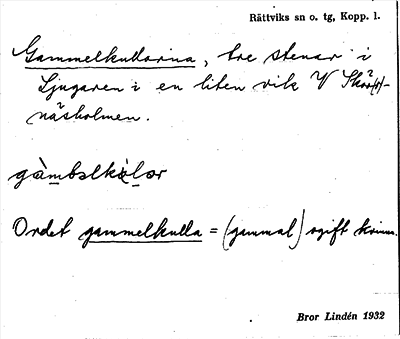 Rättviks sn o. tg, Kopp. l.
Gammelkullorna, tre stenar i
Ljugaren i en liten vik V Skär(r)-
näsholmen.
Ordet gammelkulla = (gammal) ogift kvinn.
Bror Lindén 1932